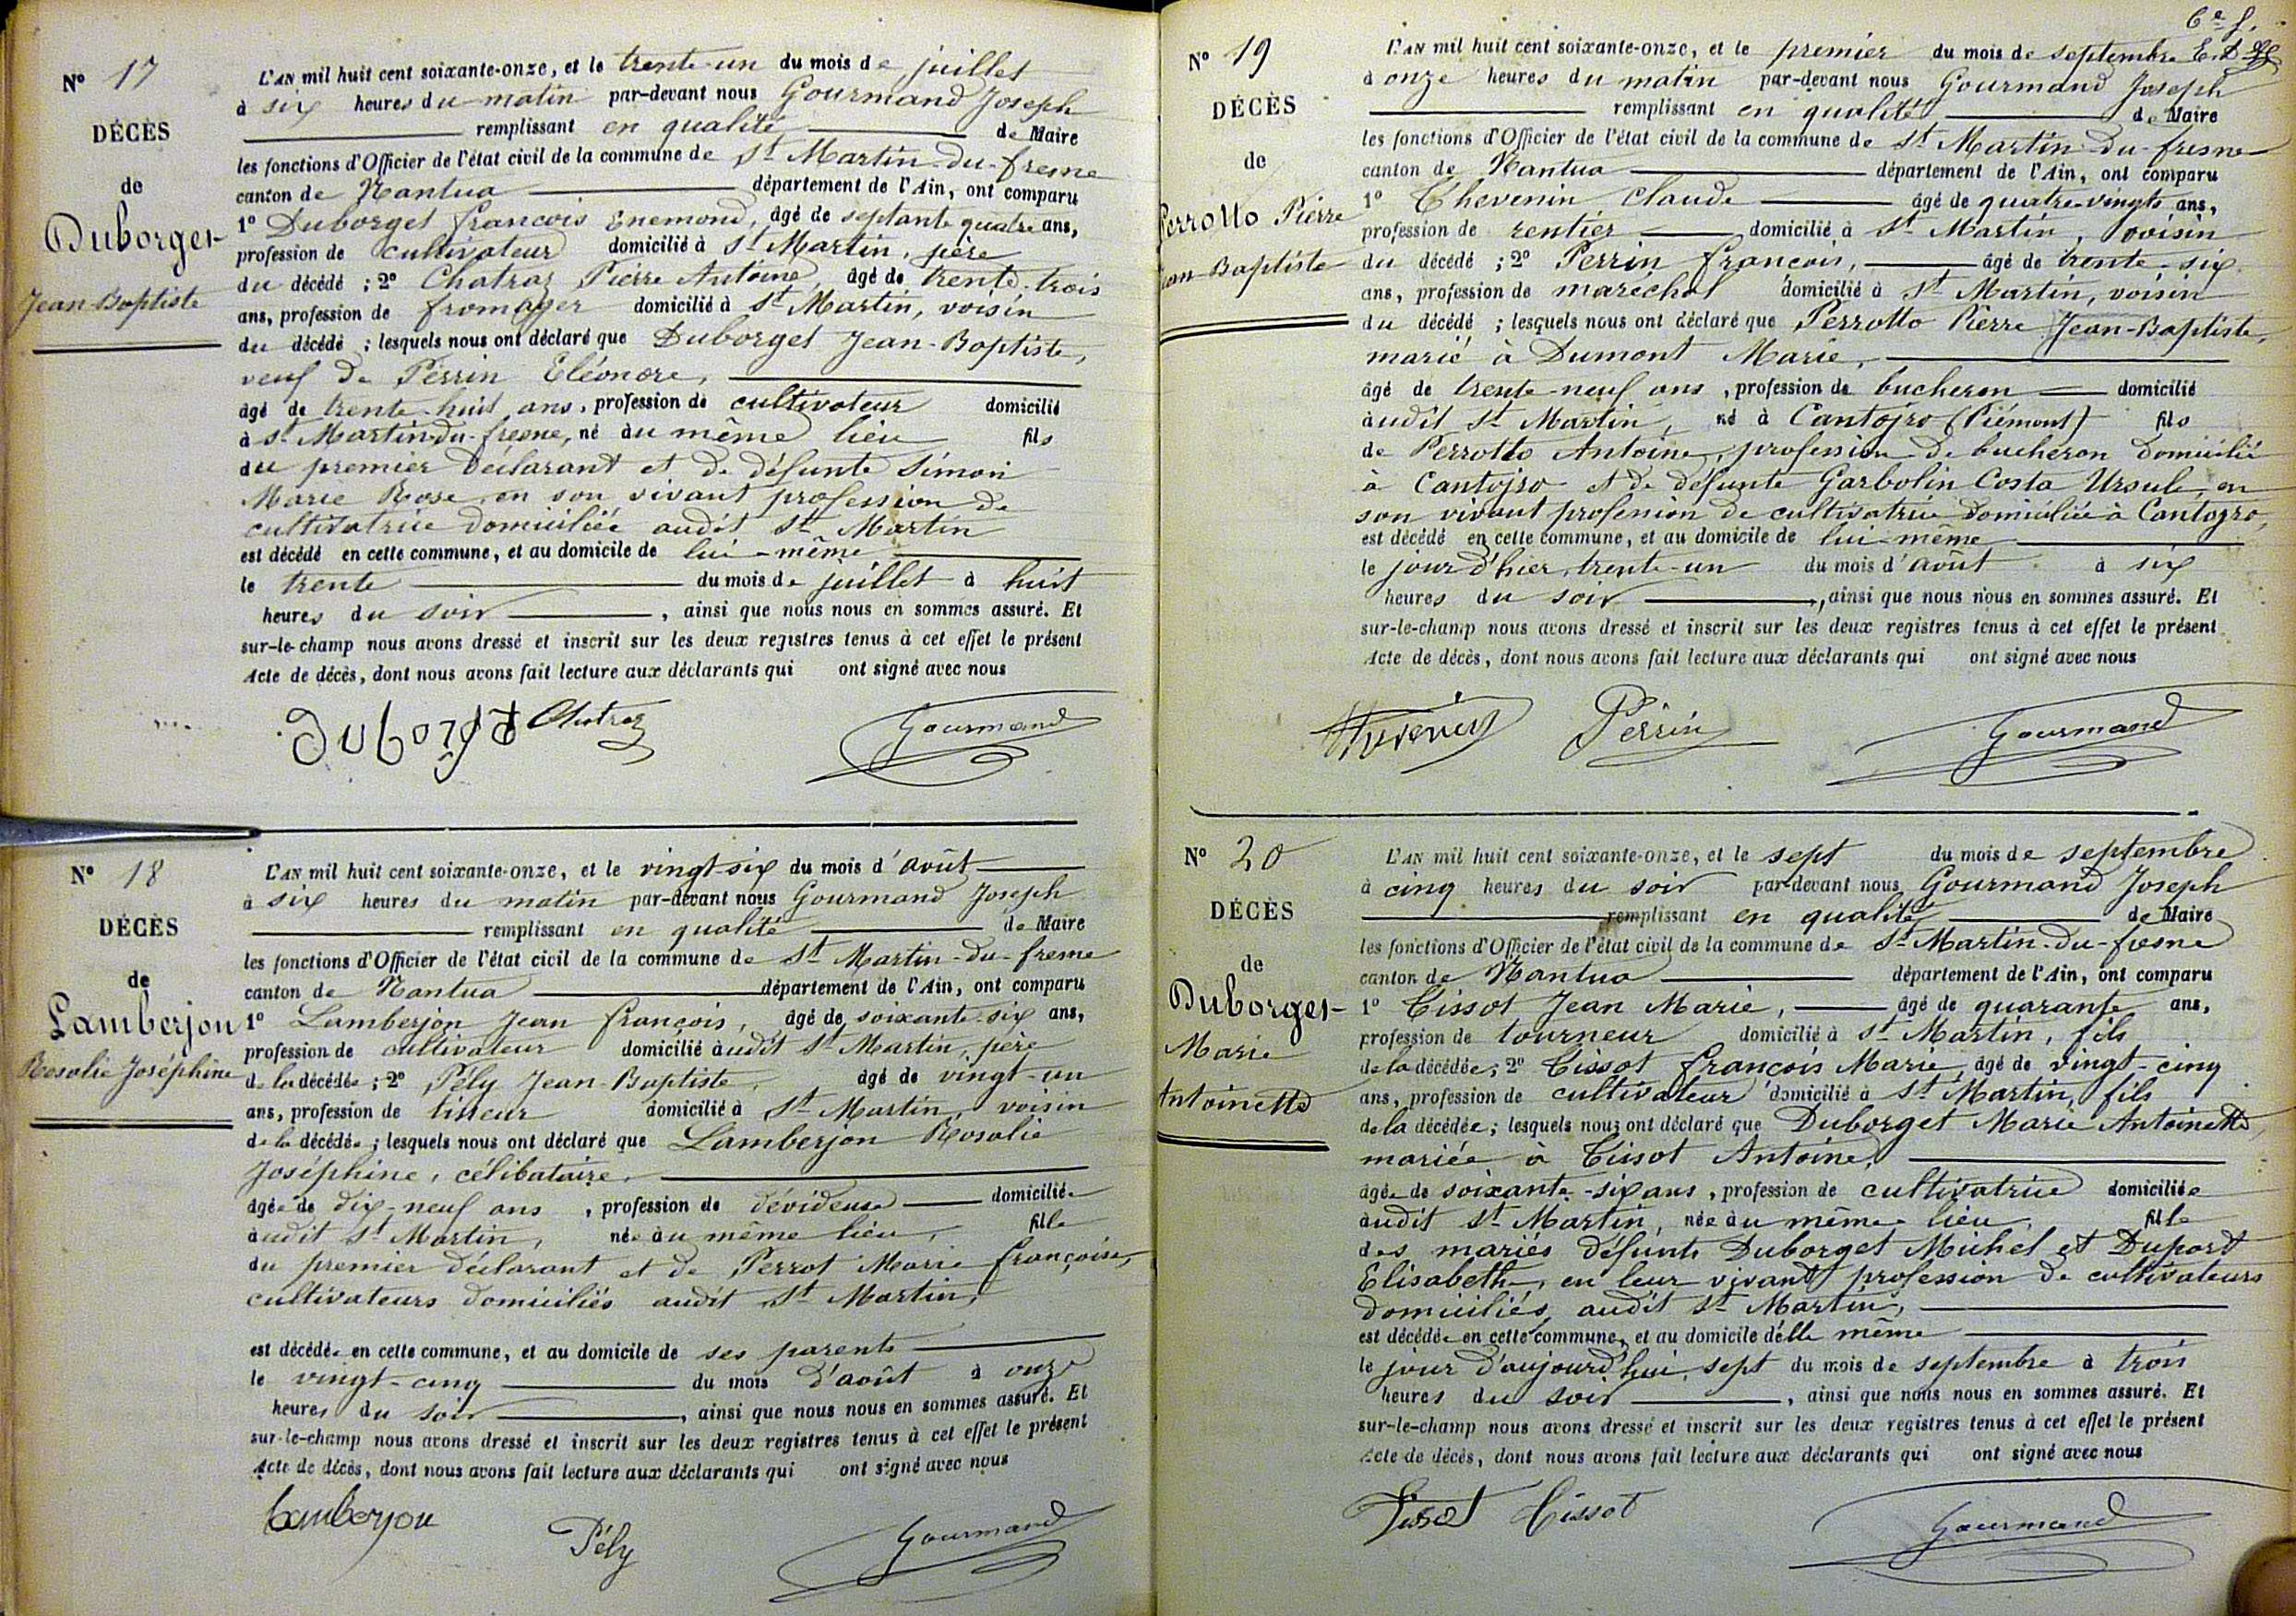 N° 17
DÉCÈS
de
Duborget
Jean-Baptiste
L'AN mil huit cent soixante-onze, et le trente-un du mois de juillet
à six heures du matin par-devant nous Gourmand Joseph
remplissant en qualité de Maire
les fonctions d'Officier de l'état civil de la commune de St Martin-du-fresne
canton de Nantua département de l'Ain, ont comparu
1° Duborget francois Enemond, âgé de septante quatre ans,
profession de cultivateur domicilié à St Martin, père
du décédé ; 2° Chatraz Pierre Antoine, âgé de trente-trois
ans, profession de fromager domicilié à St Martin, voisin
du décédé ; lesquels nous ont déclaré que Duborget Jean-Baptiste,
veuf de Perrin Eléonore,
âgé de trente-huit ans, profession de cultivateur domicilié
à St Martin-du-fresne, né au même lieu fils
du premier déclarant et de défunte Simon
Marie Rose, en son vivant profession de
cultivatrice domiciliée audit St Martin
est décédé en cette commune, et au domicile de lui-même
le trente du mois de juillet à huit
heures du soir, ainsi que nous nous en sommes assuré. Et
sur-le-champ nous avons dressé et inscrit sur les deux registres tenus à cet effet le présent
Acte de décès, dont nous avons fait lecture aux déclarants qui ont signé avec nous
Duborget Chatraz Gourmand
N° 18
DÉCÈS
de
Lamberjon
Rosalie Joséphine
L'AN mil huit cent soixante-onze, et le vingt-six du mois d'août
à six heures du matin par-devant nous Gourmand Joseph
remplissant en qualité de Maire
les fonctions d'Officier de l'état civil de la commune de St Martin-du-fresne
canton de Nantua département de l'Ain, ont comparu
1° Lamberjon Jean françois, âgé de soixante-six ans,
profession de cultivateur domicilié audit St Martin, père
de la décédée ; 2° Pély Jean-Baptiste, âgé de vingt-un
ans, profession de tisseur domicilié à St Martin, voisin
de la décédée ; lesquels nous ont déclaré que Lamberjon Rosalie
Joséphine, célibataire,
âgée de dix-neuf ans, profession de dévideuse domiciliée
audit St Martin, née au même lieu, fille
du premier déclarant et de Perrot Marie françoise,
cultivateurs domiciliés audit St Martin,
est décédée en cette commune, et au domicile de ses parents
le vingt-cinq du mois d'août à onze
heures du soir, ainsi que nous nous en sommes assuré. Et
sur-le-champ nous avons dressé et inscrit sur les deux registres tenus à cet effet le présent
Acte de décès, dont nous avons fait lecture aux déclarants qui ont signé avec nous
Lamberjon Pély Gourmand
6e f.
N° 19
DÉCÈS
de
Perrotto Pierre
Jean-Baptiste
L'AN mil huit cent soixante-onze, et le premier du mois de septembre
à onze heures du matin par-devant nous Gourmand Joseph
remplissant en qualité de Maire
les fonctions d'Officier de l'état civil de la commune de St Martin-du-fresne
canton de Nantua département de l'Ain, ont comparu
1° Thevenin Claude âgé de quatre-vingts ans,
profession de rentier domicilié à St Martin, voisin
du décédé ; 2° Perrin françois, âgé de trente-six
ans, profession de maréchal domicilié à St Martin, voisin
du décédé ; lesquels nous ont déclaré que Perrotto Pierre Jean-Baptiste,
marié à Dumont Marie,
âgé de trente-neuf ans, profession de bucheron domicilié
audit St Martin, né à Cantojro (Piémont) fils
de Perrotto Antoine, profession de bucheron domicilié
à Cantojro et de défunte Garbolin Costa Ursule, en
son vivant profession de cultivatrice domiciliée à Cantogro,
est décédé en cette commune, et au domicile de lui-même
le jour d'hier, trente-un du mois d'août à six
heures du soir, ainsi que nous nous en sommes assuré. Et
sur-le-champ nous avons dressé et inscrit sur les deux registres tenus à cet effet le présent
Acte de décès, dont nous avons fait lecture aux déclarants qui ont signé avec nous
Thevenin Perrin Gourmand
N° 20
DÉCÈS
de
Duborget
Marie
Antoinette
L'AN mil huit cent soixante-onze, et le sept du mois de septembre
à cinq heures du soir par-devant nous Gourmand Joseph
remplissant en qualité de Maire
les fonctions d'Officier de l'état civil de la commune de St Martin-du-fresne
canton de Nantua département de l'Ain, ont comparu
1° Tissot Jean Marie, âgé de quarante ans,
profession de tourneur domicilié à St Martin, fils
de la décédée ; 2° Tissot françois Marie, âgé de vingt-cinq
ans, profession de cultivateur domicilié à St Martin, fils
de la décédée ; lesquels nous ont déclaré que Duborget Marie Antoinette,
mariée à Tissot Antoine,
âgée de soixante-six ans, profession de cultivatrice domiciliée
audit St Martin, née au même lieu, fille
des mariés défunts Duborget Michel et Duport
Elisabeth, en leur vivant profession de cultivateurs
domiciliés audit St Martin,
est décédée en cette commune, et au domicile d'elle même
le jour d'aujourd'hui, sept du mois de septembre à trois
heures du soir, ainsi que nous nous en sommes assuré. Et
sur-le-champ nous avons dressé et inscrit sur les deux registres tenus à cet effet le présent
Acte de décès, dont nous avons fait lecture aux déclarants qui ont signé avec nous
Tissot Tissot Gourmand